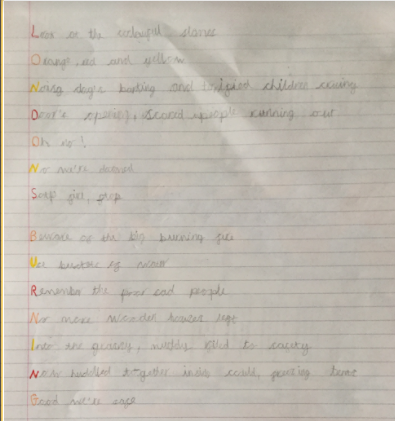 Look at the colourful flames
Orange, red and yellow
Noisy dogs barking and children crying
Doors opening, scared people running out
Oh no!
No we're doomed
Stop girl, stop
Beware of the big burning fire
Use buckets of water
Remember the poor sad people
No more wooden houses left
Into the muddy to safety
Now huddled together in cold, time
Good we're safe